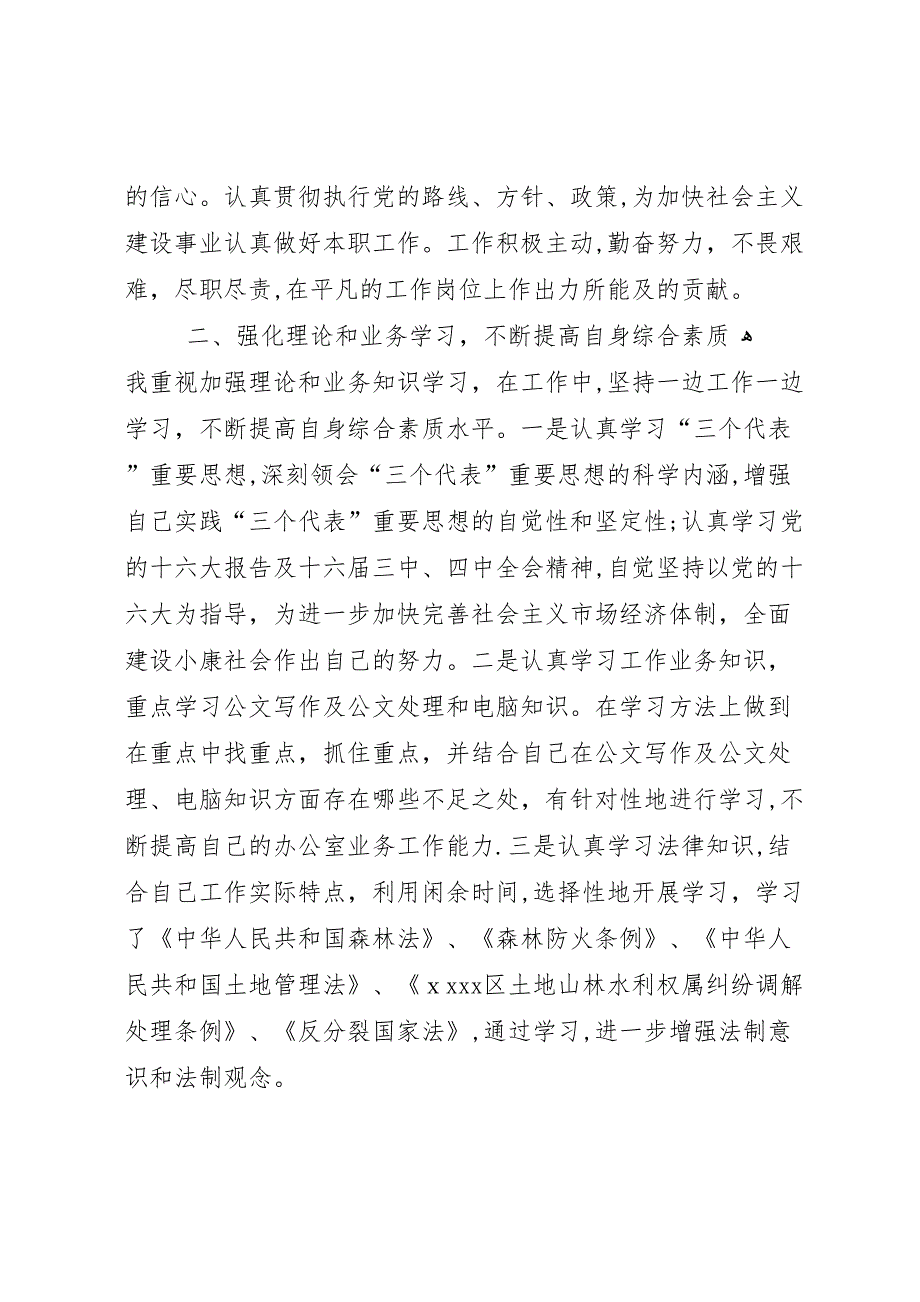 的信心。认真贯彻执行党的路线、方针、政策,为加快社会主义
建设事业认真做好本职工作。工作积极主动,勤奋努力，不畏艰
难，尽职尽责,在平凡的工作岗位上作出力所能及的贡献。
二、强化理论和业务学习，不断提高自身综合素质 ﻫ
我重视加强理论和业务知识学习，在工作中,坚持一边工作一边
学习，不断提高自身综合素质水平。一是认真学习“三个代表
”重要思想,深刻领会“三个代表”重要思想的科学内涵,增强
自己实践“三个代表”重要思想的自觉性和坚定性;认真学习党
的十六大报告及十六届三中、四中全会精神,自觉坚持以党的十
六大为指导，为进一步加快完善社会主义市场经济体制，全面
建设小康社会作出自己的努力。二是认真学习工作业务知识，
重点学习公文写作及公文处理和电脑知识。在学习方法上做到
在重点中找重点，抓住重点，并结合自己在公文写作及公文处
理、电脑知识方面存在哪些不足之处，有针对性地进行学习,不
断提高自己的办公室业务工作能力.三是认真学习法律知识,结
合自己工作实际特点，利用闲余时间,选择性地开展学习，学习
了《中华人民共和国森林法》、《森林防火条例》、《中华人
民共和国土地管理法》、《ｘxxx区土地山林水利权属纠纷调解
处理条例》、《反分裂国家法》,通过学习,进一步增强法制意
识和法制观念。